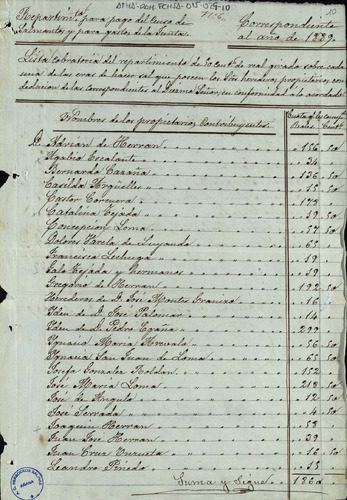 ATHA-DAH-FCHSA-015-029-10
10
Repartimto para pago del Guarda de
Salinantes y para gastos de la Junta.
Correspondiente
al año de 1889.
Lista cobratoria del repartimiento de 50 cent.s de real girado sobre cada
una de las eras de hacer sal que poseen los Sres herederos propietarios con
deducion de las correspondientes al
en conformidad a lo acordado
Nombres de los propietarios contribuyentes.
Reales Cent.s
D. Adrian de Herran 156 50
Agabio Escalante 24
Bernarda Cazaña 136 50
Casilda Argüelles 15 50
Castor Corcuera 173
Catalina Tejada 39 50
Concepcion Loma 57 50
Dolores Varela de Luyando 65
Francisca Lechuga 19
Lalo Tejada y hermanos 39
Gregorio del Herran 192 50
Herederos de D. José Montes Granizo 16
Idem de D. José Palomar 14
Idem de D. Pedro Egaña 299
Ignacio Maria Herevala 56 50
Ignacia San Juan de Loma 65 50
Josefa Gonzalez Roldan 152
José Maria Loma 218 50
José de Angulo 12 50
José Serrada 4 50
Joaquin Herran 58
Juan José Herran 39
Juan Cruz Unzueta 16 50
Leandro Pinedo 15
Suma y Sigue